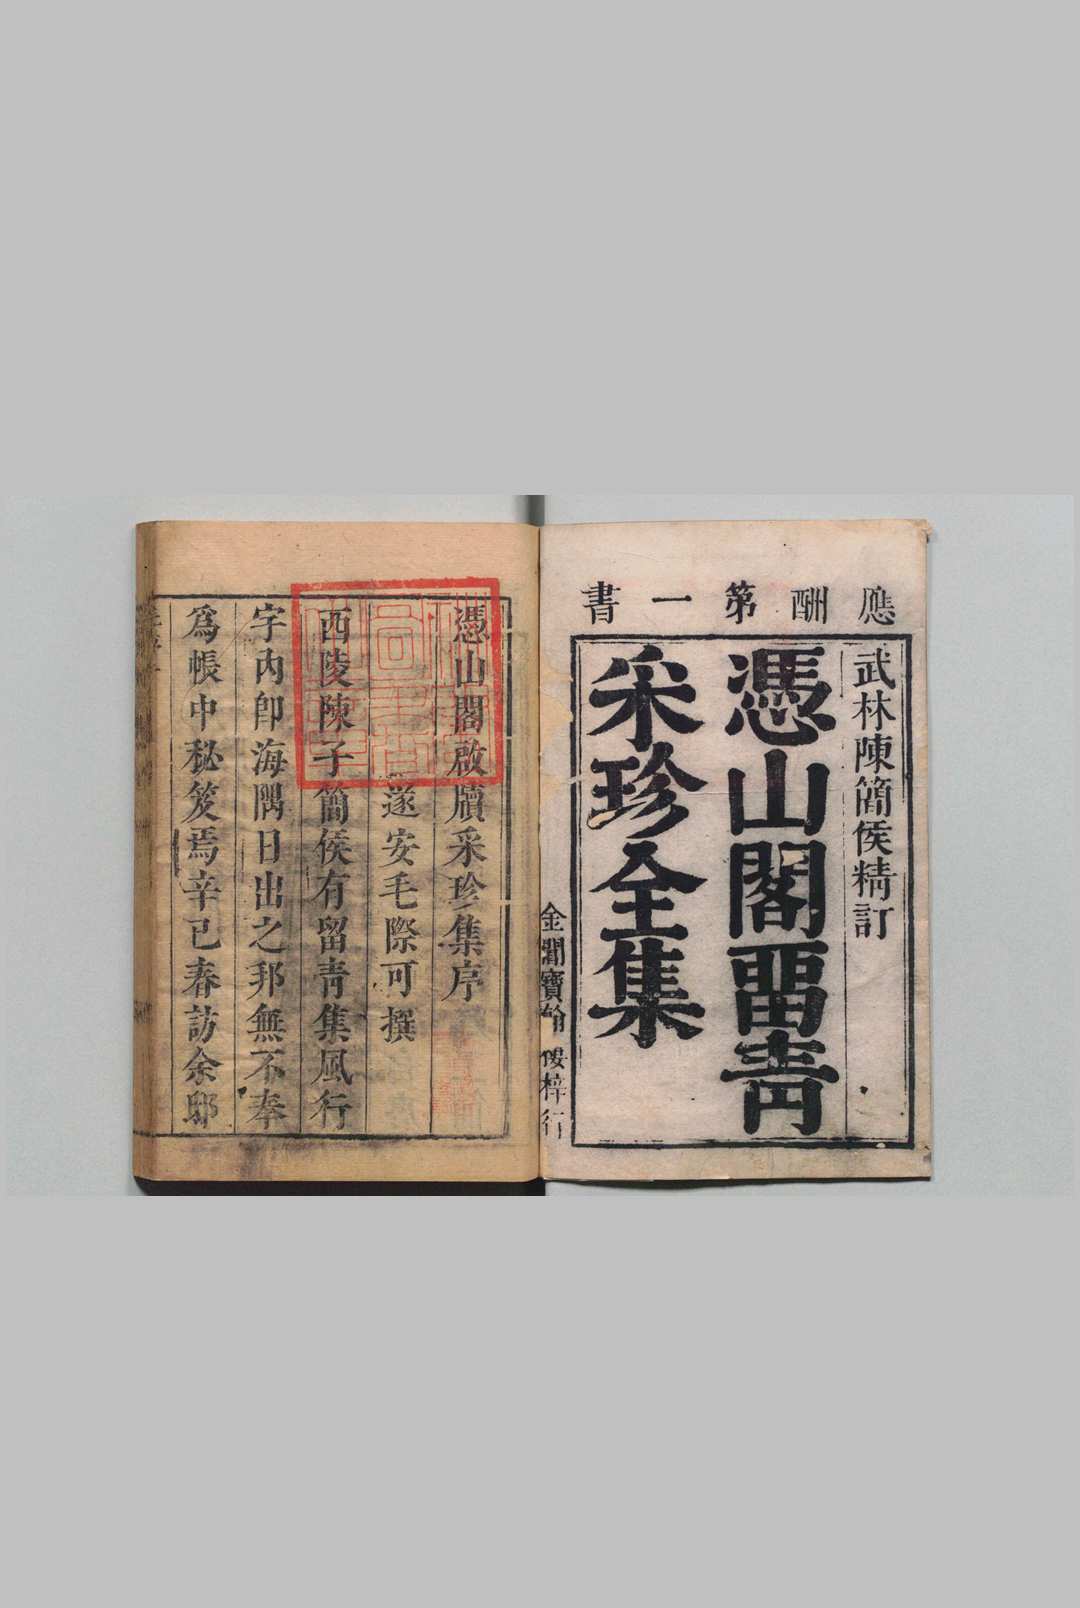 應酬第一書
武林陳簡侯精訂
憑山閣畱靑
采珍全集
金閶寶翰樓梓行
憑山閣啟牘采珍集序
遂安毛際可撰
西陵陳子簡侯有留靑集風行
宇內卽海隅日出之邦無不奉
爲帳中秘笈焉辛巳春訪余邸